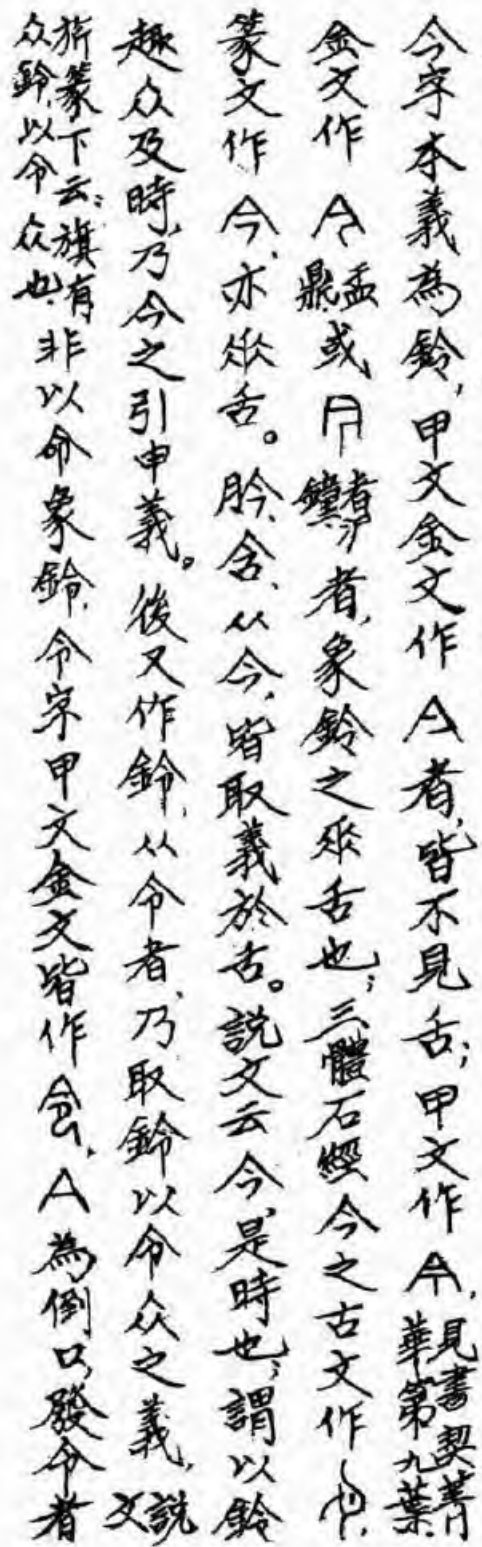 今字本義為鈴，甲文金文作A者，皆不見舌；甲文作，見書契菁華第九葉
金文作 盂鼎或 者鐘者，象鈴之舌也；三體石經今之古文作，
篆文作今，亦舌。肣、含、从今，皆取義於舌。說文云今，是時也；謂以鈴
趣众及時，乃今之引申義。後又作鈴，从令者，乃取鈴以令众之義，說文
旂篆下云：旗有众鈴，以令众也，非以命象鈴，令字甲文金文皆作，A為倒口，發令者